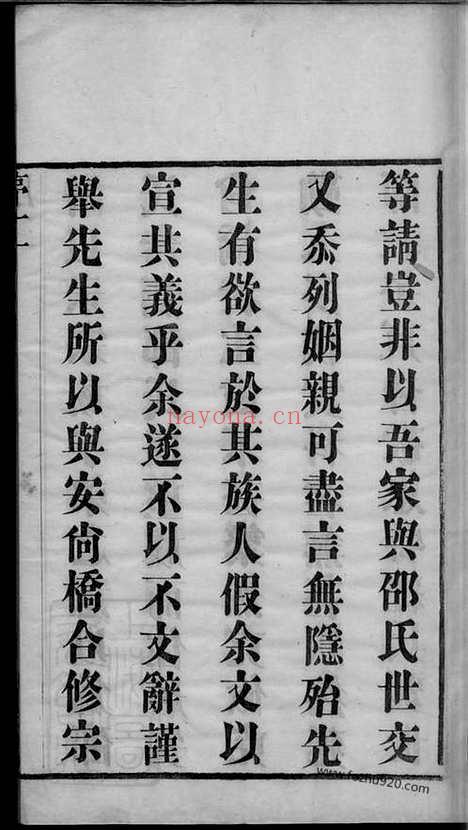 等請豈非以吾家與邵氏世交
又忝列姻親可盡言無隱殆先
生有欲言於其族人假余文以
宣其義乎余遂不以不文辭謹
舉先生所以與安尙橋合修宗
nayona.cn
www.fozhu920.com